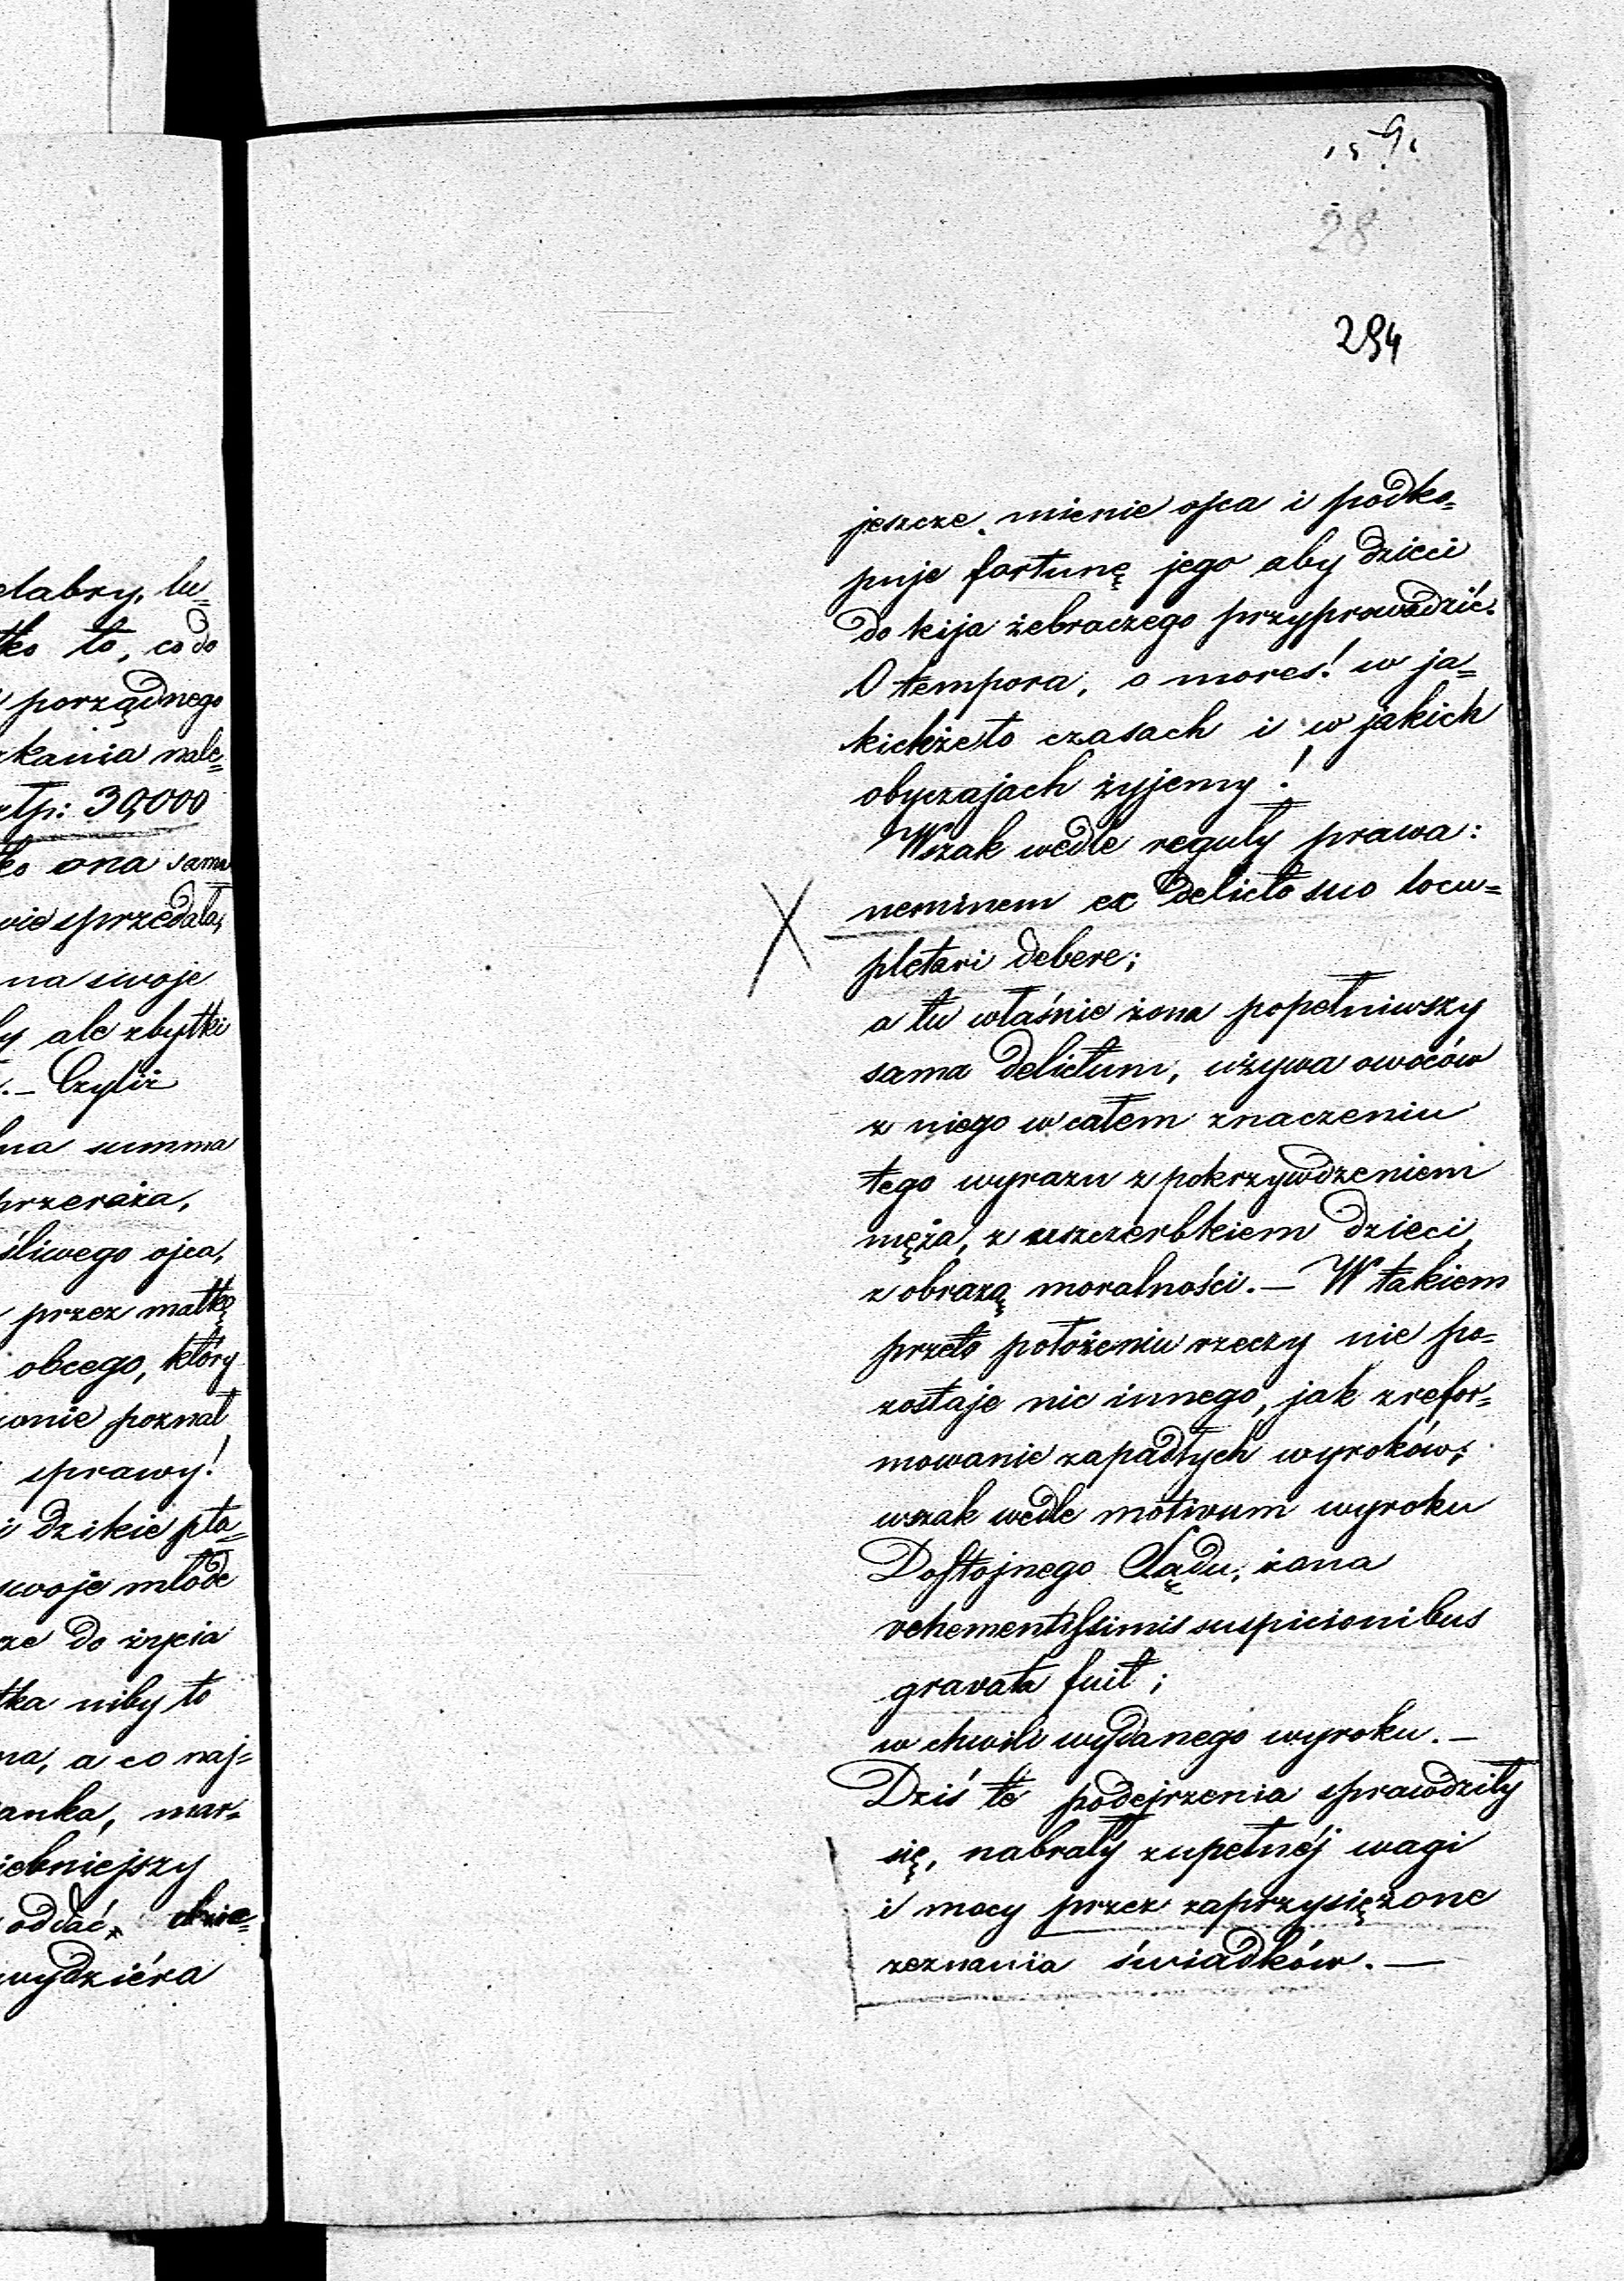 elabry, lu=
tko to, co do
porządnego
zkania nale=
złp: 30,000
ko ona sama
wie sprzedała,
na swoje
ły ale zbytki
.— Czyliż
lna summa
przeraża,
śliwego ojca,
przez matkę
obcego, który
ionie poznał
sprawy!
i dzikie pta=
swoje młode
ze do życia
tka niby to
na, a co naj=
anka, mar=
iebniejszy
oddać,
wydziéra
28
294
jeszcze mienie ojca i podko=
puje fortunę jego aby dzieci
do kija żebraczego przyprowadzić.
O tempora, o mores! w ja=
kichżeto czasach i w jakich
obyczajach żyjemy!
Wszak wedle reguły prawa:
neminem ex delicto suo locu=
pletari debere;
a tu właśnie żona popełniwszy
sama delictum, używa owoców
z niego w całem znaczeniu
tego wyrazu z pokrzywdzeniem
męża, z uszczerbkiem dzieci,
z obrazą moralności.— W takiem
przeto położeniu rzeczy nie po=
zostaje nic innego, jak zrefor=
mowanie zapadłych wyroków;
wszak wedle motivum wyroku
Dostojnego Sądu, żona
vehementissimis suspicionibus
gravata fuit;
w chwili wydanego wyroku.—
Dziś te podejrzenia sprawdziły
się, nabrały zupełnéj wagi
i mocy przez zaprzysiężone
zeznania świadków.—